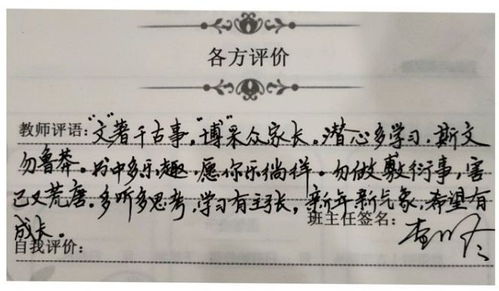 各方评价
教师评语:“文”著千古事,“博”采众家长。潜心多学习,斯文
勿鲁莽。书中多乐趣,愿你乐徜徉。勿做敷衍事,害
己又荒唐。多听多思考,学习有主张。新年新气象,希望有
成长。 班主任签名:
自我评价: